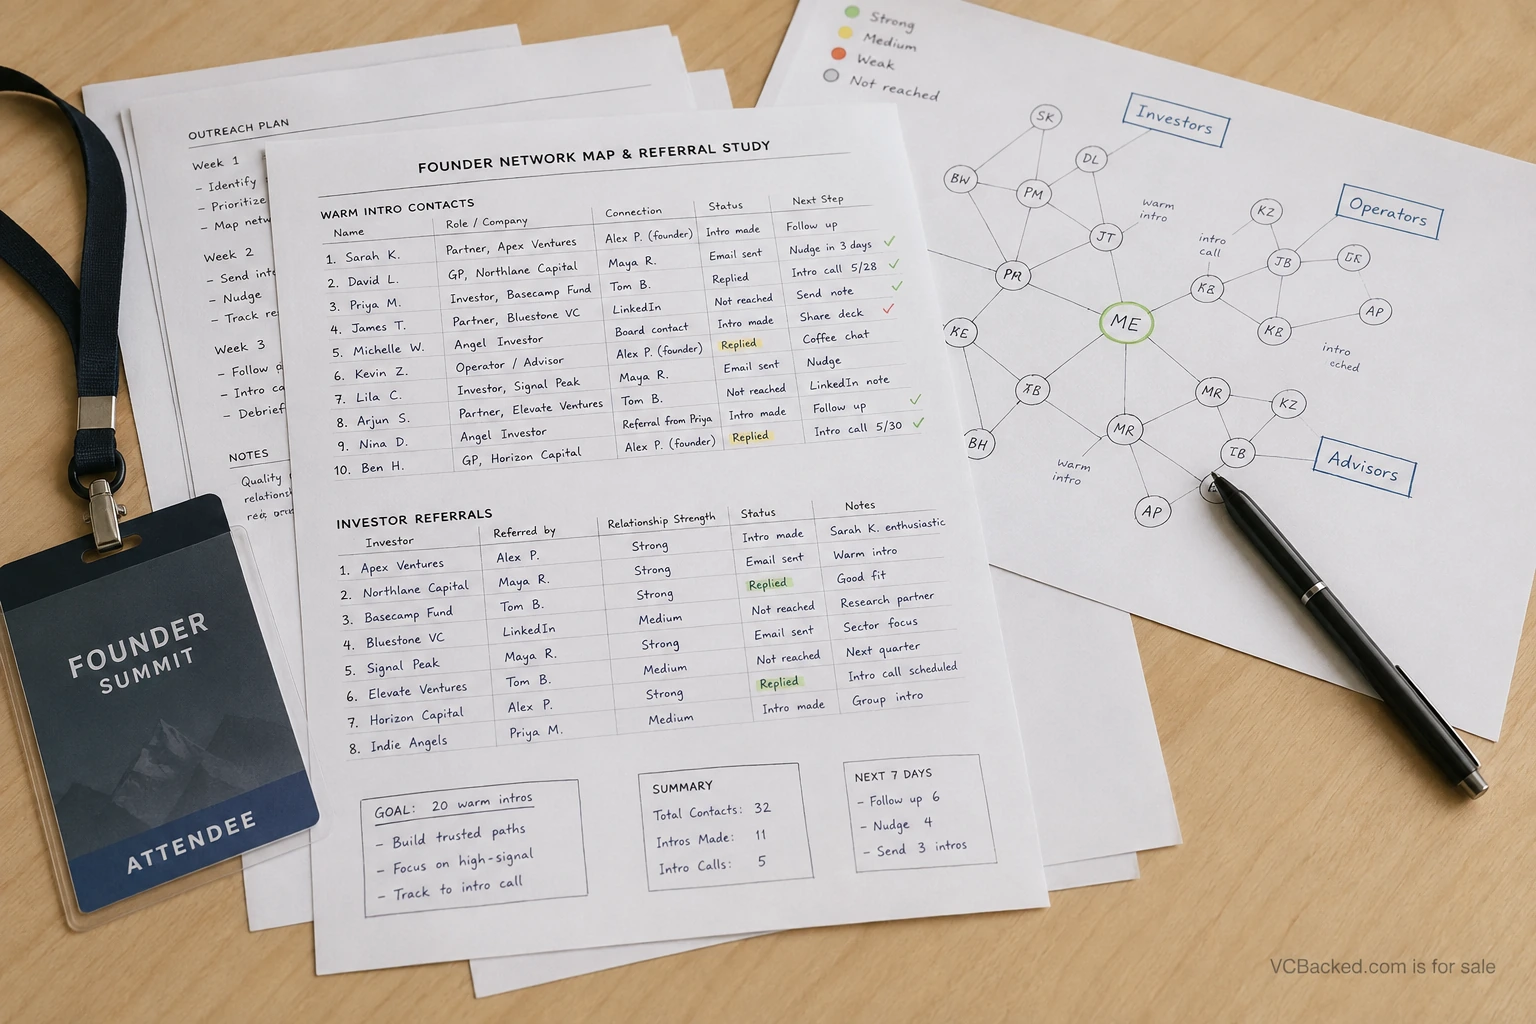 OUTREACH PLAN
Week 1
– Identify
– Prioritize
– Map netw
Week 2
– Send int
– Nudge
– Track re
Week 3
– Follow
– Intro ca
– Debrief
NOTES
Quality
relations
FOUNDER NETWORK MAP & REFERRAL STUDY
WARM INTRO CONTACTS
Name Role / Company Connection Status Next Step
1. Sarah K. Partner, Apex Ventures Alex P. (founder) Intro made Follow up
2. David L. GP, Northlane Capital Maya R. Email sent Nudge in 3 days ✓
3. Priya M. Investor, Basecamp Fund Tom B. Replied Intro call 5/28 ✓
4. James T. Partner, Bluestone VC LinkedIn Not reached Send note ✓
5. Michelle W. Angel Investor Board contact Intro made Share deck ✓
6. Kevin Z. Operator / Advisor Alex P. (founder) Replied Coffee chat
7. Lila C. Investor, Signal Peak Maya R. Email sent Nudge
8. Arjun S. Partner, Elevate Ventures Tom B. Not reached LinkedIn note
9. Nina D. Angel Investor Referral from Priya Intro made Follow up ✓
10. Ben H. GP, Horizon Capital Alex P. (founder) Replied Intro call 5/30 ✓
INVESTOR REFERRALS
Investor Referred by Relationship Strength Status Notes
1. Apex Ventures Alex P. Strong Intro made Sarah K. enthusiastic
2. Northlane Capital Maya R. Strong Email sent Warm intro
3. Basecamp Fund Tom B. Strong Replied Good fit
4. Bluestone VC LinkedIn Medium Not reached Research partner
5. Signal Peak Maya R. Strong Email sent Sector focus
6. Elevate Ventures Tom B. Medium Not reached Next quarter
7. Horizon Capital Alex P. Strong Replied Intro call scheduled
8. Indie Angels Priya M. Medium Intro made Group intro
GOAL: 20 warm intros
– Build trusted paths
– Focus on high-signal
– Track to intro call
SUMMARY
Total Contacts: 32
Intros Made: 11
Intro Calls: 5
NEXT 7 DAYS
– Follow up 6
– Nudge 4
– Send 3 intros
Strong
Medium
Weak
Not reached
Investors
Operators
Advisors
SK
DL
BW
PM
JT
warm
intro
KZ
intro
call
JB
KB
AP
KB
ME
KE
intro
eched
MR
KZ
BH
MR
warm
intro
AP
FOUNDER
SUMMIT
ATTENDEE
VCBacked.com is for sale